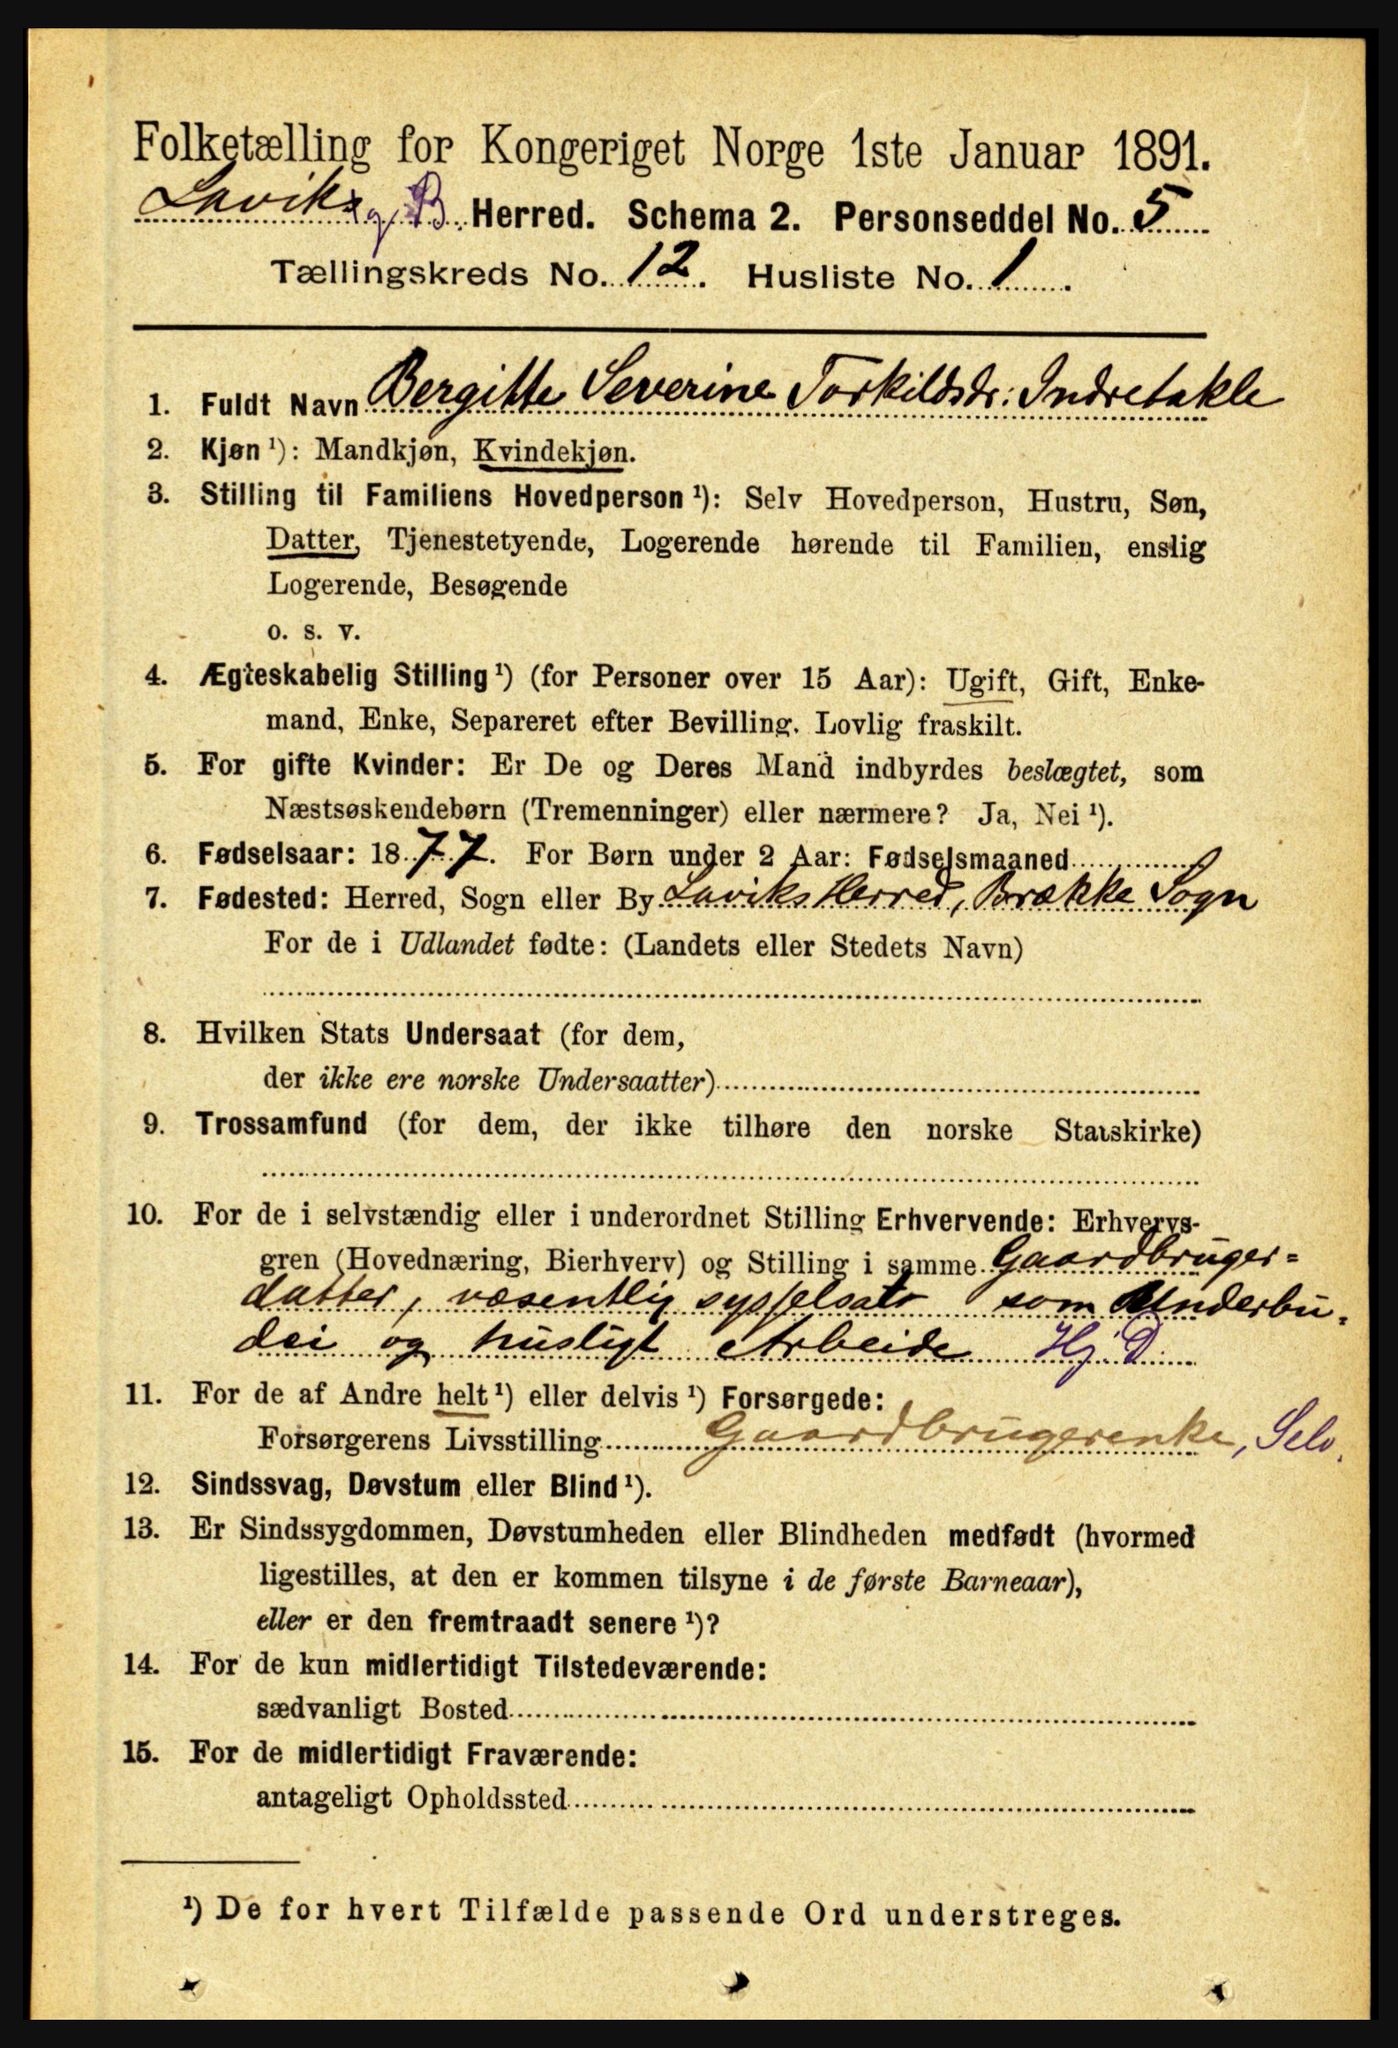 Folketælling for Kongeriget Norge 1ste Januar 1891.
Laviks og B. Herred. Schema 2. Personseddel No. 5
Tællingskreds No. 12. Husliste No. 1.
1. Fuldt Navn Bergitte Severine Torkildsdr. Indretakle
2. Kjøn ¹): Mandkjøn, Kvindekjøn.
3. Stilling til Familiens Hovedperson ¹): Selv Hovedperson, Hustru, Søn,
Datter, Tjenestetyende, Logerende hørende til Familien, enslig
Logerende, Besøgende
o. s. v.
4. Ægteskabelig Stilling ¹) (for Personer over 15 Aar): Ugift, Gift, Enke-
mand, Enke, Separeret efter Bevilling. Lovlig fraskilt.
5. For gifte Kvinder: Er De og Deres Mand indbyrdes beslægtet, som
Næstsøskendebørn (Tremenninger) eller nærmere? Ja, Nei ¹).
6. Fødselsaar: 1877. For Børn under 2 Aar: Fødselsmaaned
7. Fødested: Herred, Sogn eller By Laviks Herred, Brække Sogn
For de i Udlandet fødte: (Landets eller Stedets Navn)
8. Hvilken Stats Undersaat (for dem,
der ikke ere norske Undersaatter)
9. Trossamfund (for dem, der ikke tilhøre den norske Statskirke)
10. For de i selvstændig eller i underordnet Stilling Erhvervende: Erhvervs-
gren (Hovednæring, Bierhverv) og Stilling i samme Gaardbruger=
datter, væsentlig sysselsat som Underbu-
dei og husligt Arbeide Hj. D
11. For de af Andre helt ¹) eller delvis ¹) Forsørgede:
Forsørgerens Livsstilling Gaardbrugerenke, Selv.
12. Sindssvag, Døvstum eller Blind ¹).
13. Er Sindssygdommen, Døvstumheden eller Blindheden medfødt (hvormed
ligestilles, at den er kommen tilsyne i de første Barneaar),
eller er den fremtraadt senere ¹)?
14. For de kun midlertidigt Tilstedeværende:
sædvanligt Bosted
15. For de midlertidigt Fraværende:
antageligt Opholdssted
¹) De for hvert Tilfælde passende Ord understreges.